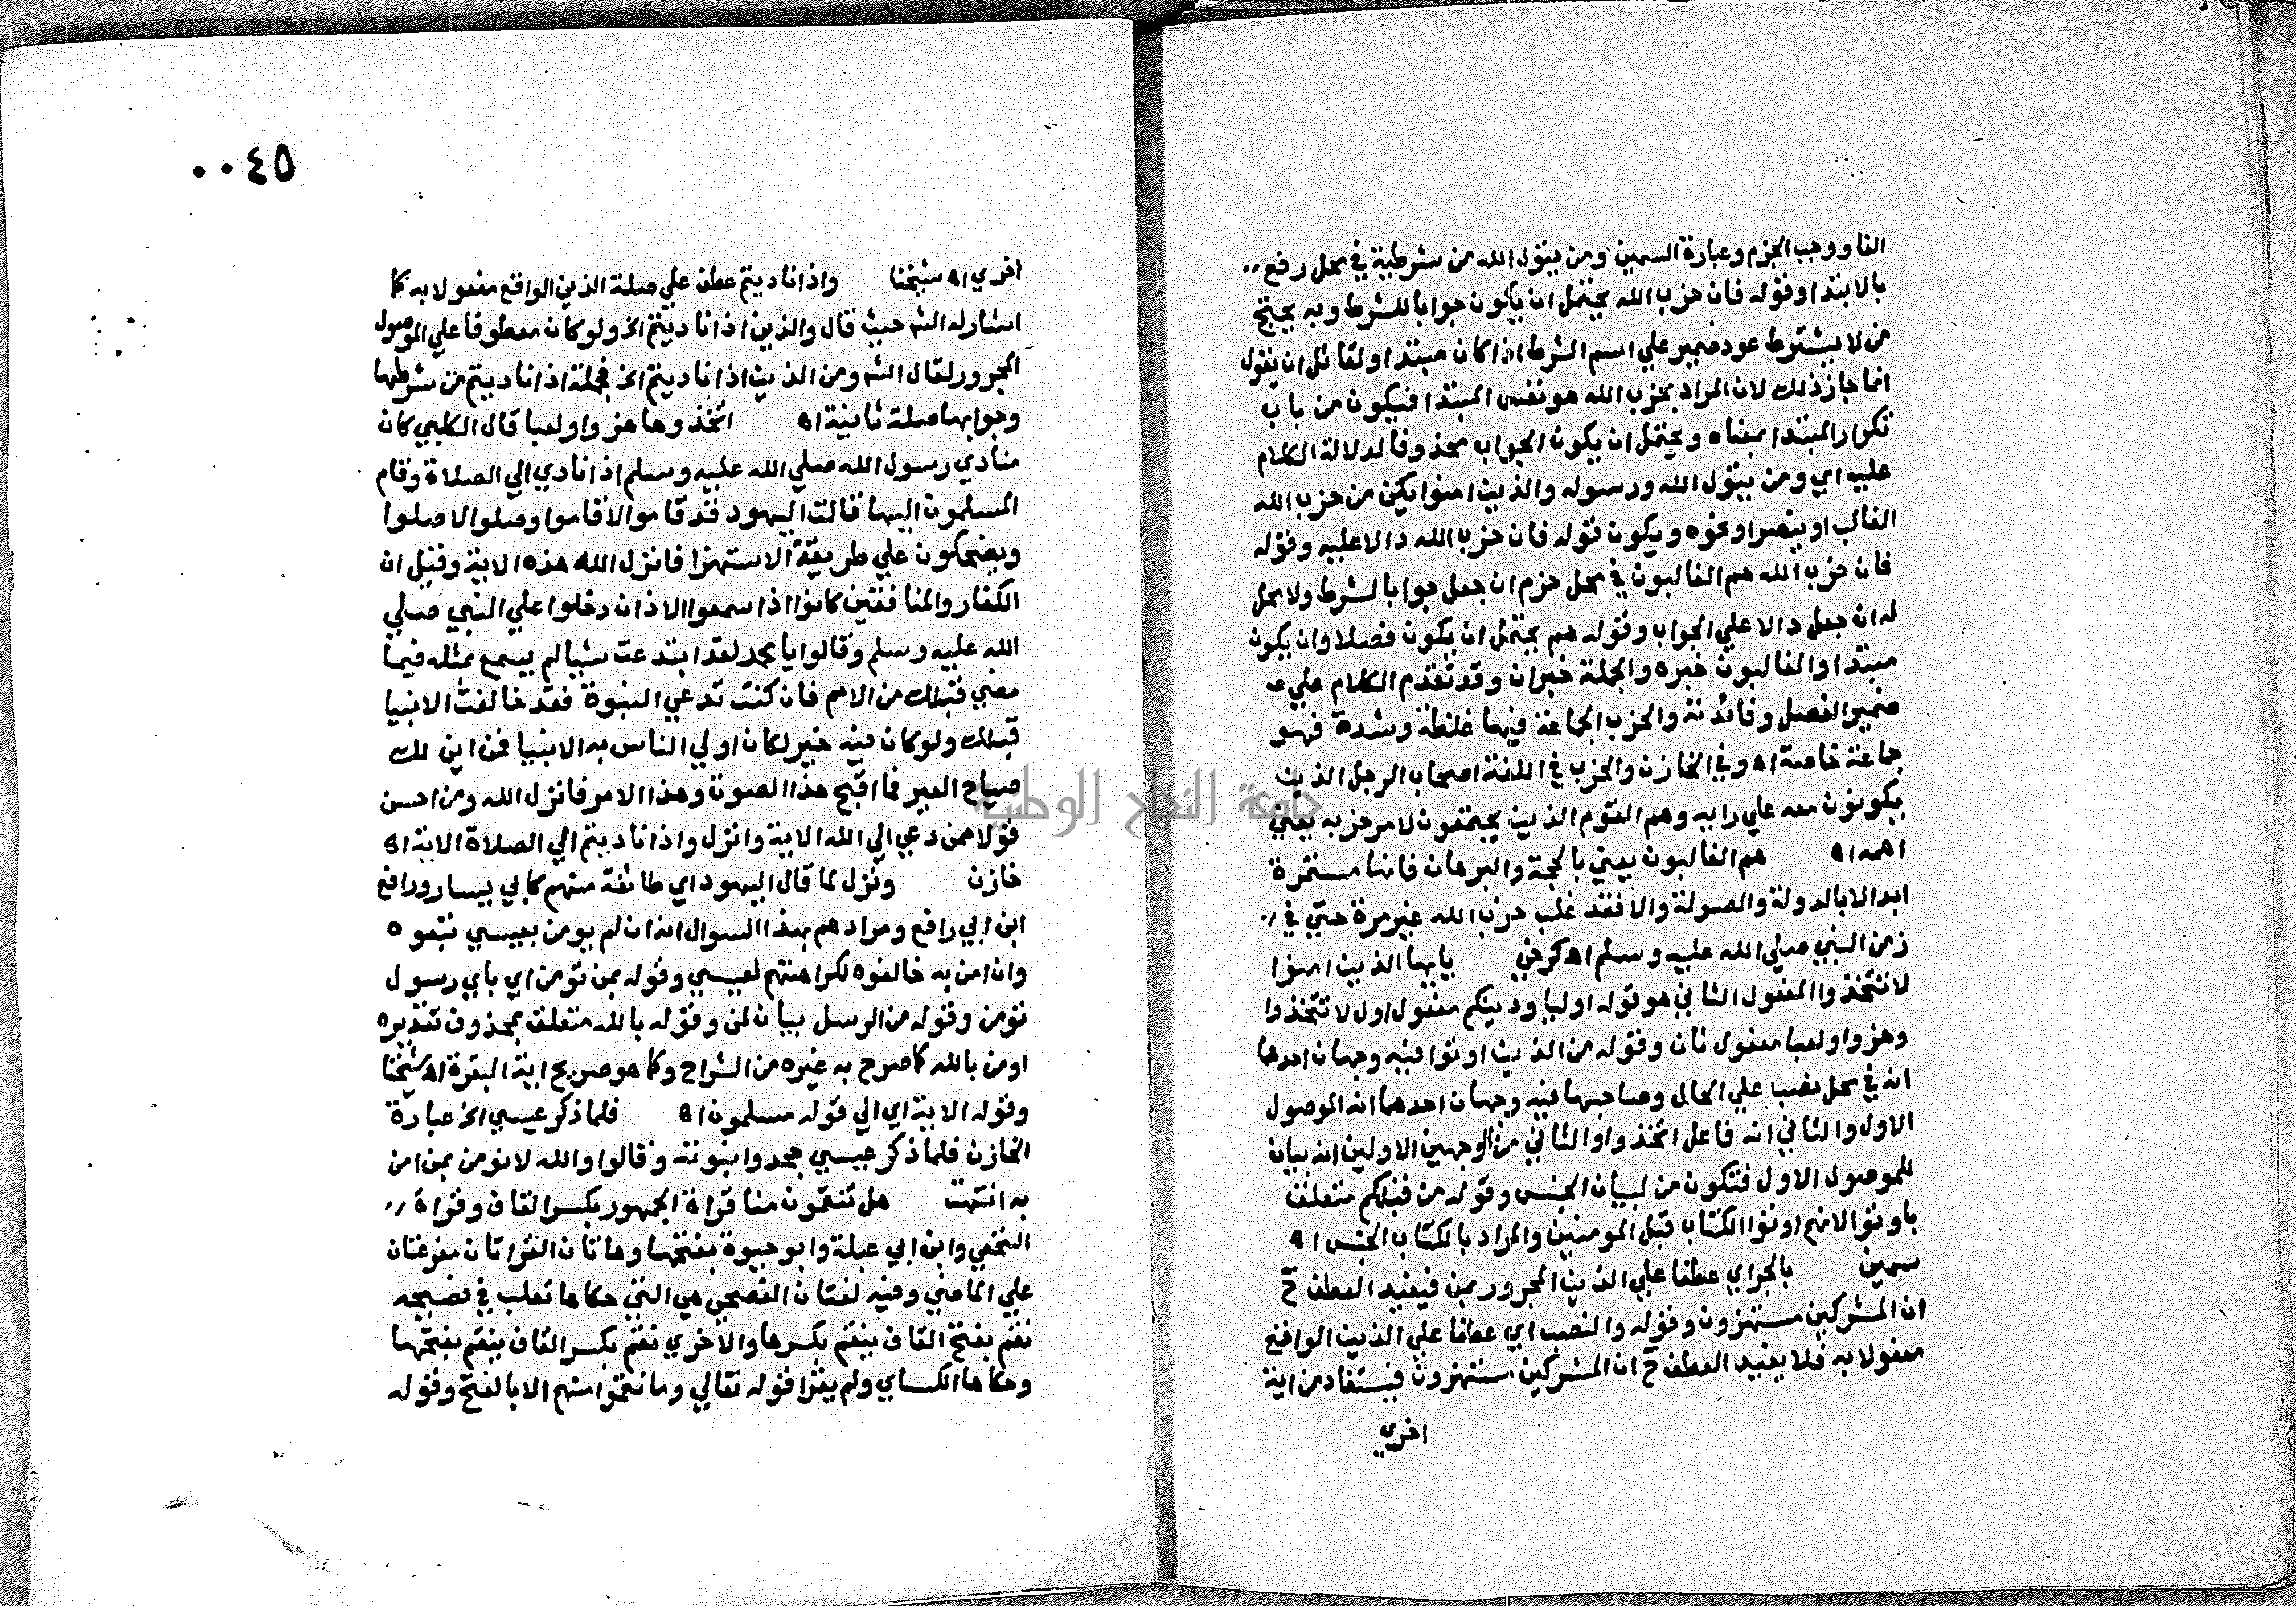 الفا ووجب الجزم وعبارة السمين ومن يتول الله من شرطية في محل رفع
بالابتدا وقوله فان حزب الله يحتمل ان يكون جوابا للشرط وبه يحتج
من لا يشترط عود ضمير علي اسم الشرط اذا كان مبتدا ولقائل ان يقول
انما جاز ذلك لان المراد بحزب الله هو نفس المبتدا فيكون من باب
تكرار المبتدا بمعناه ويحتمل ان يكون الجواب محذوفا لدلالة الكلام
عليه اي ومن يتول الله ورسوله والذين امنوا يكن من حزب الله
الغالب او ينصر او نحوه ويكون قوله فان حزب الله دالا عليه وقوله
فان حزب الله هم الغالبون في محل جزم ان جعل جوابا لشرط ولا محل
له ان جعل دالا علي الجواب وقوله هم يحتمل ان يكون فصلا وان يكون
مبتدا والغالبون خبره والجملة خبر ان وقد تقدم الكلام علي
ضمير الفصل وفائدته والحزب الجماعة فيها غلظة وشدة فهو
جماعة خاصة اه وفي الخازن والحزب في اللغة اصحاب الرجل الذين
يكونون معه علي رايه وهم القوم الذين يجتمعون لامر حزبه يعني
اهمه اه هم الغالبون يعني بالحجة والبرهان فانها مستمرة
ابدا لا بالدولة والصولة والا فقد غلب حزب الله غير مرة حتي في
زمن النبي صلي الله عليه وسلم اه كرخي يايها الذين امنوا
لا تتخذوا المفعول الثاني هو قوله اوليا ودينكم مفعول اول لا تتخذوا
وهزوا ولعبا مفعول ثان وقوله من الذين اوتوا فيه وجهان احدها
انه في محل نصب علي الحال وصاحبها فيه وجهان احدهما انه الموصول
الاول والثاني انه فاعل اتخذوا والثاني من الوجهين الاولين انه بيان
للموصول الاول فتكون من لبيان الجنس وقوله من قبلكم متعلق
باوتوا لانهم اوتوا الكتاب قبل المومنين والمراد بالكتاب الجنس اه
سمين بالجر اي عطفا علي الذين المجرور بمن فيفيد العطف ح
ان المشركين مستهزون وقوله والنصب اي عطفا علي الذين الواقع
مفعولا به فلا يفيد العطف ح ان المشركين مستهزون فيستفاد من اية
اخري
٠٠٤٥
اخري اه شيخنا واذا ناديتم عطف علي صلة الذين الواقع مفعولا به كما
اشار له الش حيث قال والذين اذا ناديتم الخ ولو كان معطوفا علي الموصول
المجرور لقال الش ومن الذين اذا ناديتم الخ فجملة اذا ناديتم من شرطها
وجوابها صلة ثانية اه اتخذوها هزوا ولعبا قال الكلبي كان
منادي رسول الله صلي الله عليه وسلم اذا نادي الي الصلاة وقام
المسلمون اليها قالت اليهود قد قاموا لا قاموا وصلوا لا صلوا
ويضحكون علي طريقة الاستهزا فانزل الله هذه الاية وقيل ان
الكفار والمنافقين كانوا اذا سمعوا الاذان دخلوا علي النبي صلي
الله عليه وسلم وقالوا يا محمد لقد ابتدعت شيا لم يسمع بمثله فيما
مضي قبلك من الامم فان كنت تدعي النبوة فقد خالفت الانبيا
قبلك ولو كان فيه خير لكان اولي الناس به الانبيا فمن اين لك
صياح العير فما اقبح هذا الصوت وهذا الامر فانزل الله ومن احسن
قولا ممن دعي الي الله الاية وانزل واذا ناديتم الي الصلاة الاية اه
خازن ونزل لما قال اليهود اي طائفة منهم كابي يسار ورافع
ابن ابي رافع ومرادهم بهذا السوال انه ان لم يومن بعيسي تبعوه
وان امن به خالفوه لكراهتهم لعيسي وقوله بمن تومن اي باي رسول
تومن وقوله من الرسل بيان لمن وقوله بالله متعلق بمحذوف تقديره
اومن بالله كما صرح به غيره من الشراح وكما هو صريح اية البقرة اه شيخنا
وقوله الاية اي الي قوله مسلمون اه فلما ذكر عيسي الخ عبارة
الخازن فلما ذكر عيسي جحدوا نبوته وقالوا والله لا نومن بمن امن
به انتهت هل تنقمون منا قراة الجمهور بكسر القاف وقراة
النخعي وابن ابي عبلة وابو حيوة بفتحها وهاتان القراتان مفرعتان
علي الماضي وفيه لغتان الفصحي هي التي حكاها ثعلب في فصيحه
نقم بفتح القاف ينقم بكسرها والاخري نقم بكسر القاف ينقم بفتحها
وحكاها الكساي ولم يقرا قوله تعالي وما نقموا منهم الا بالفتح وقوله
جامعة النجاح الوطنية